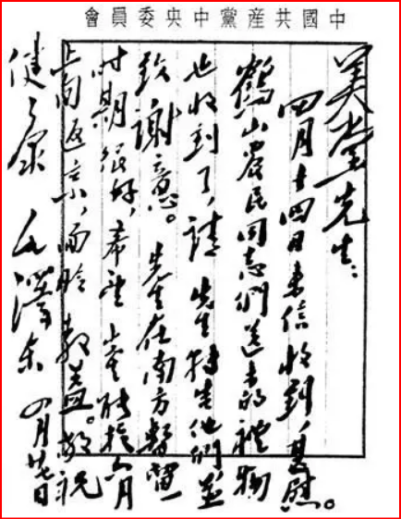 中國共産黨中央委員會
美堂先生：
四月十四日来信收到，甚慰。
鶴山農民同志們送来的禮物
也收到了，請先生轉告他們並
致謝意。先生在南方暫留一
时期很好，希望能於六月
上旬返京，面聆教益。敬祝
健康 毛澤东 四月廿七日